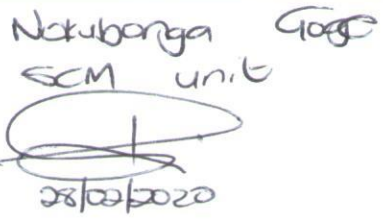 Nokubonga
SCM unit
28/02/2020